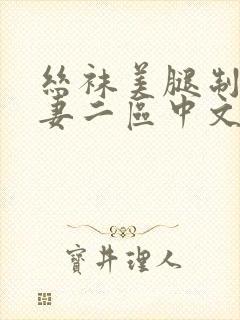 絲袜美腿制
妻二區中文
寶井理人